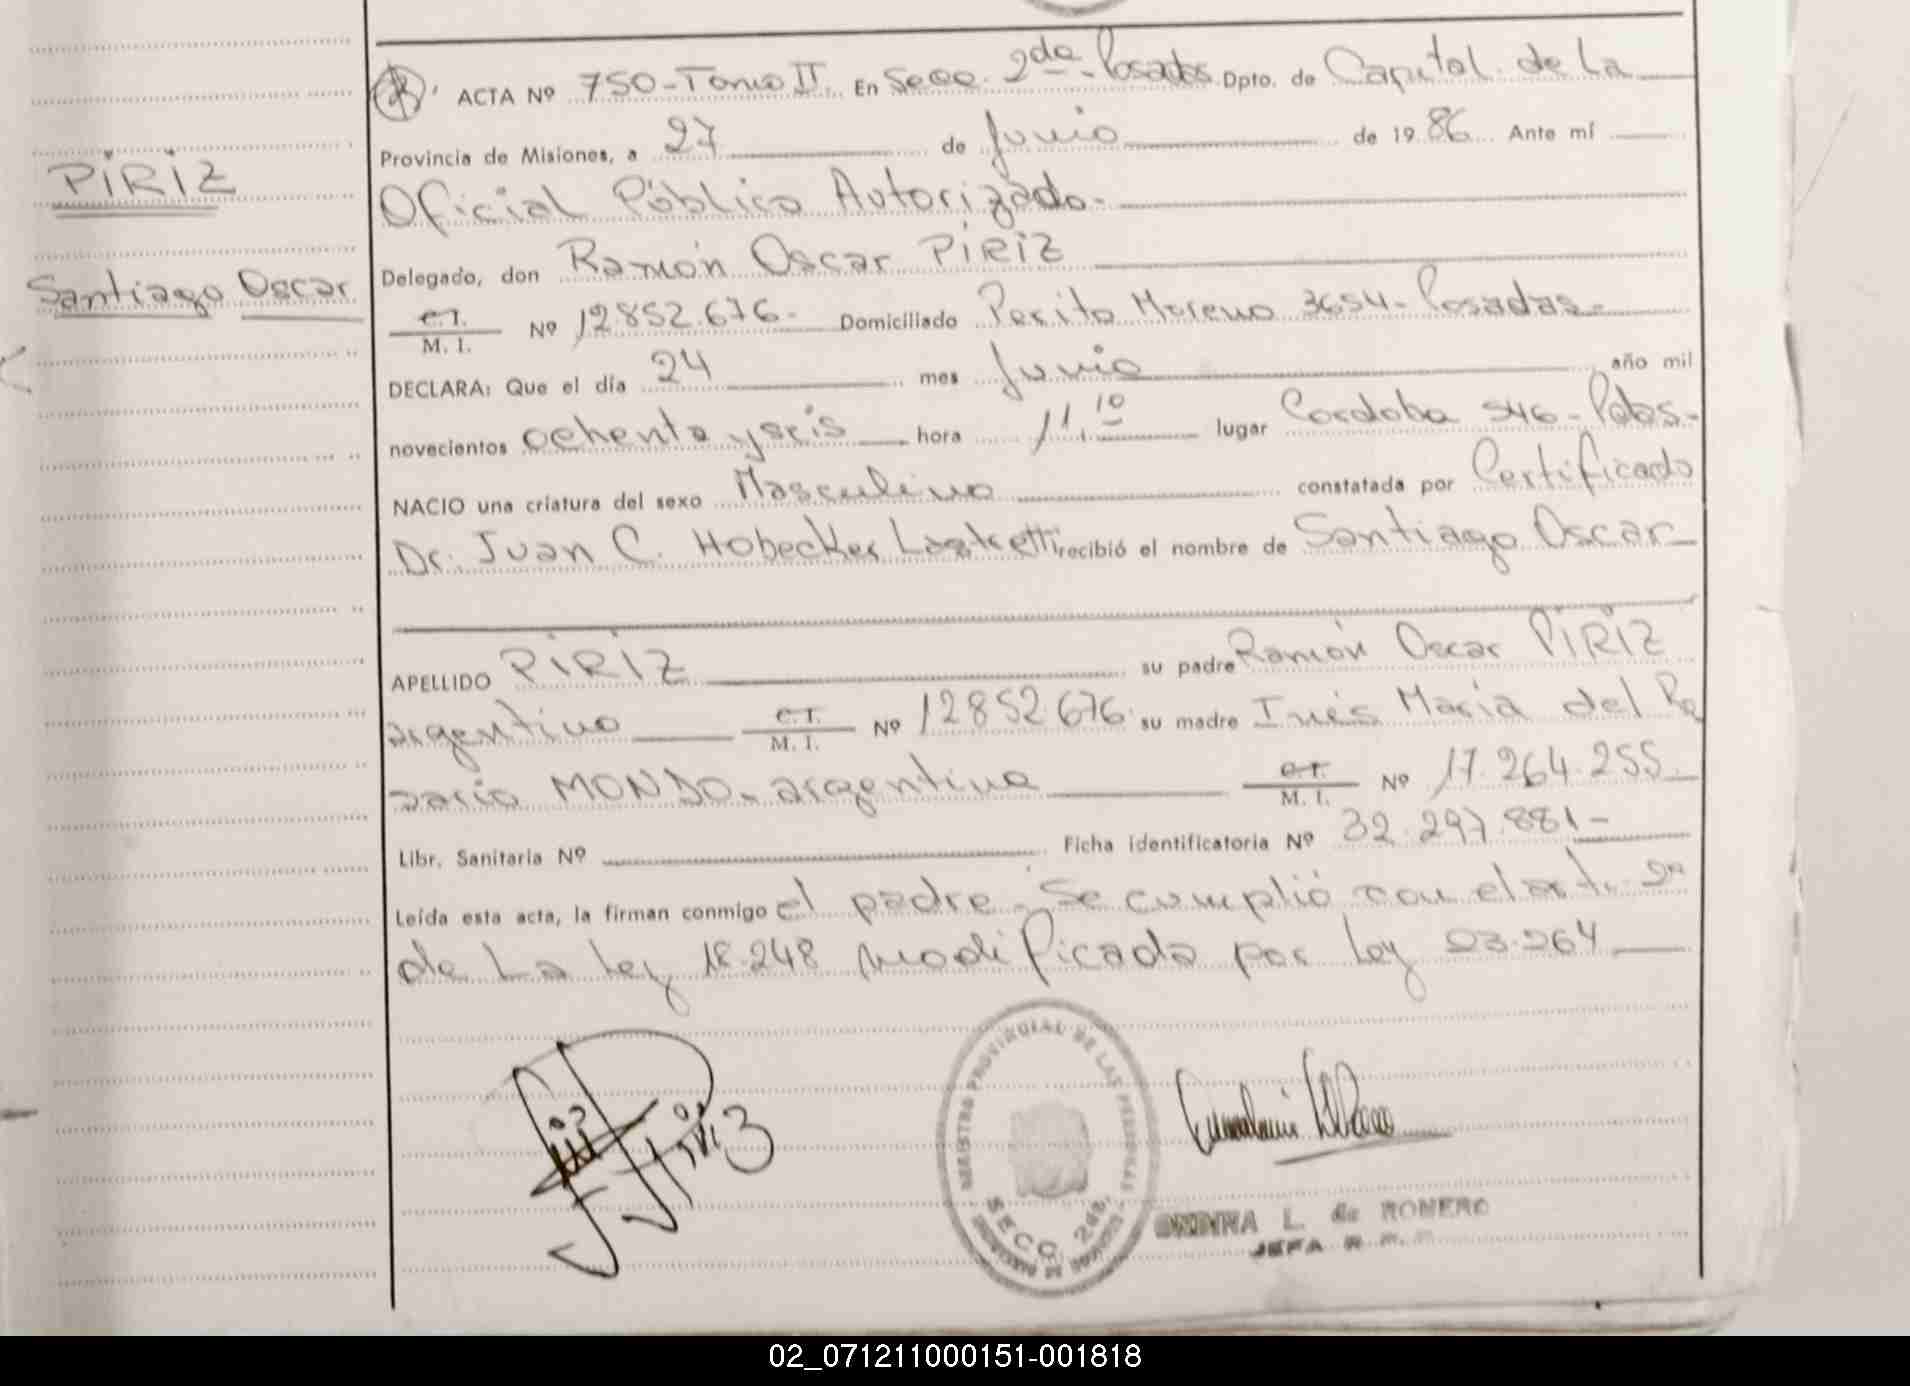 ACTA Nº 750-Tomo II. En Secc. 2da Posadas Dpto. de Capital de La
Provincia de Misiones, a 27 de Junio de 1986 Ante mí
Oficial Público Autorizado.
PIRIZ
Delegado, don Ramón Oscar PIRIZ
Santiago Oscar
C.I. M. I. Nº 12852.676. Domiciliado Perito Moreno 3654-Posadas-
DECLARA: Que el día 24 mes Junio año mil
novecientos ochenta y seis hora 11.10 lugar Cordoba 546-Pdas-
NACIO una criatura del sexo Masculino constatada por Certificado
Dr. Juan C. Hobecker recibió el nombre de Santiago Oscar
APELLIDO PIRIZ su padre Ramón Oscar PIRIZ
argentino C.I. M. I. Nº 12852.676. su madre Inés María del Ro
sario MONDO. argentina C.I. M. I. Nº 17.264.255
Libr. Sanitaria Nº Ficha identificatoria Nº 32.297.881-
Leída esta acta, la firman conmigo el padre. Se cumplió con el art. 2º
de La ley 18.248 modificada por Ley 23.264
REGISTRO PROVINCIAL DE LAS PERSONAS
SECC. 2da.
L. de ROMERO
JEFA
02_071211000151-001818